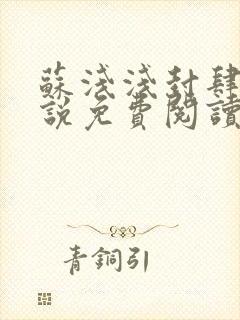 蘇淺淺封肆
說免費閱讀
青銅引